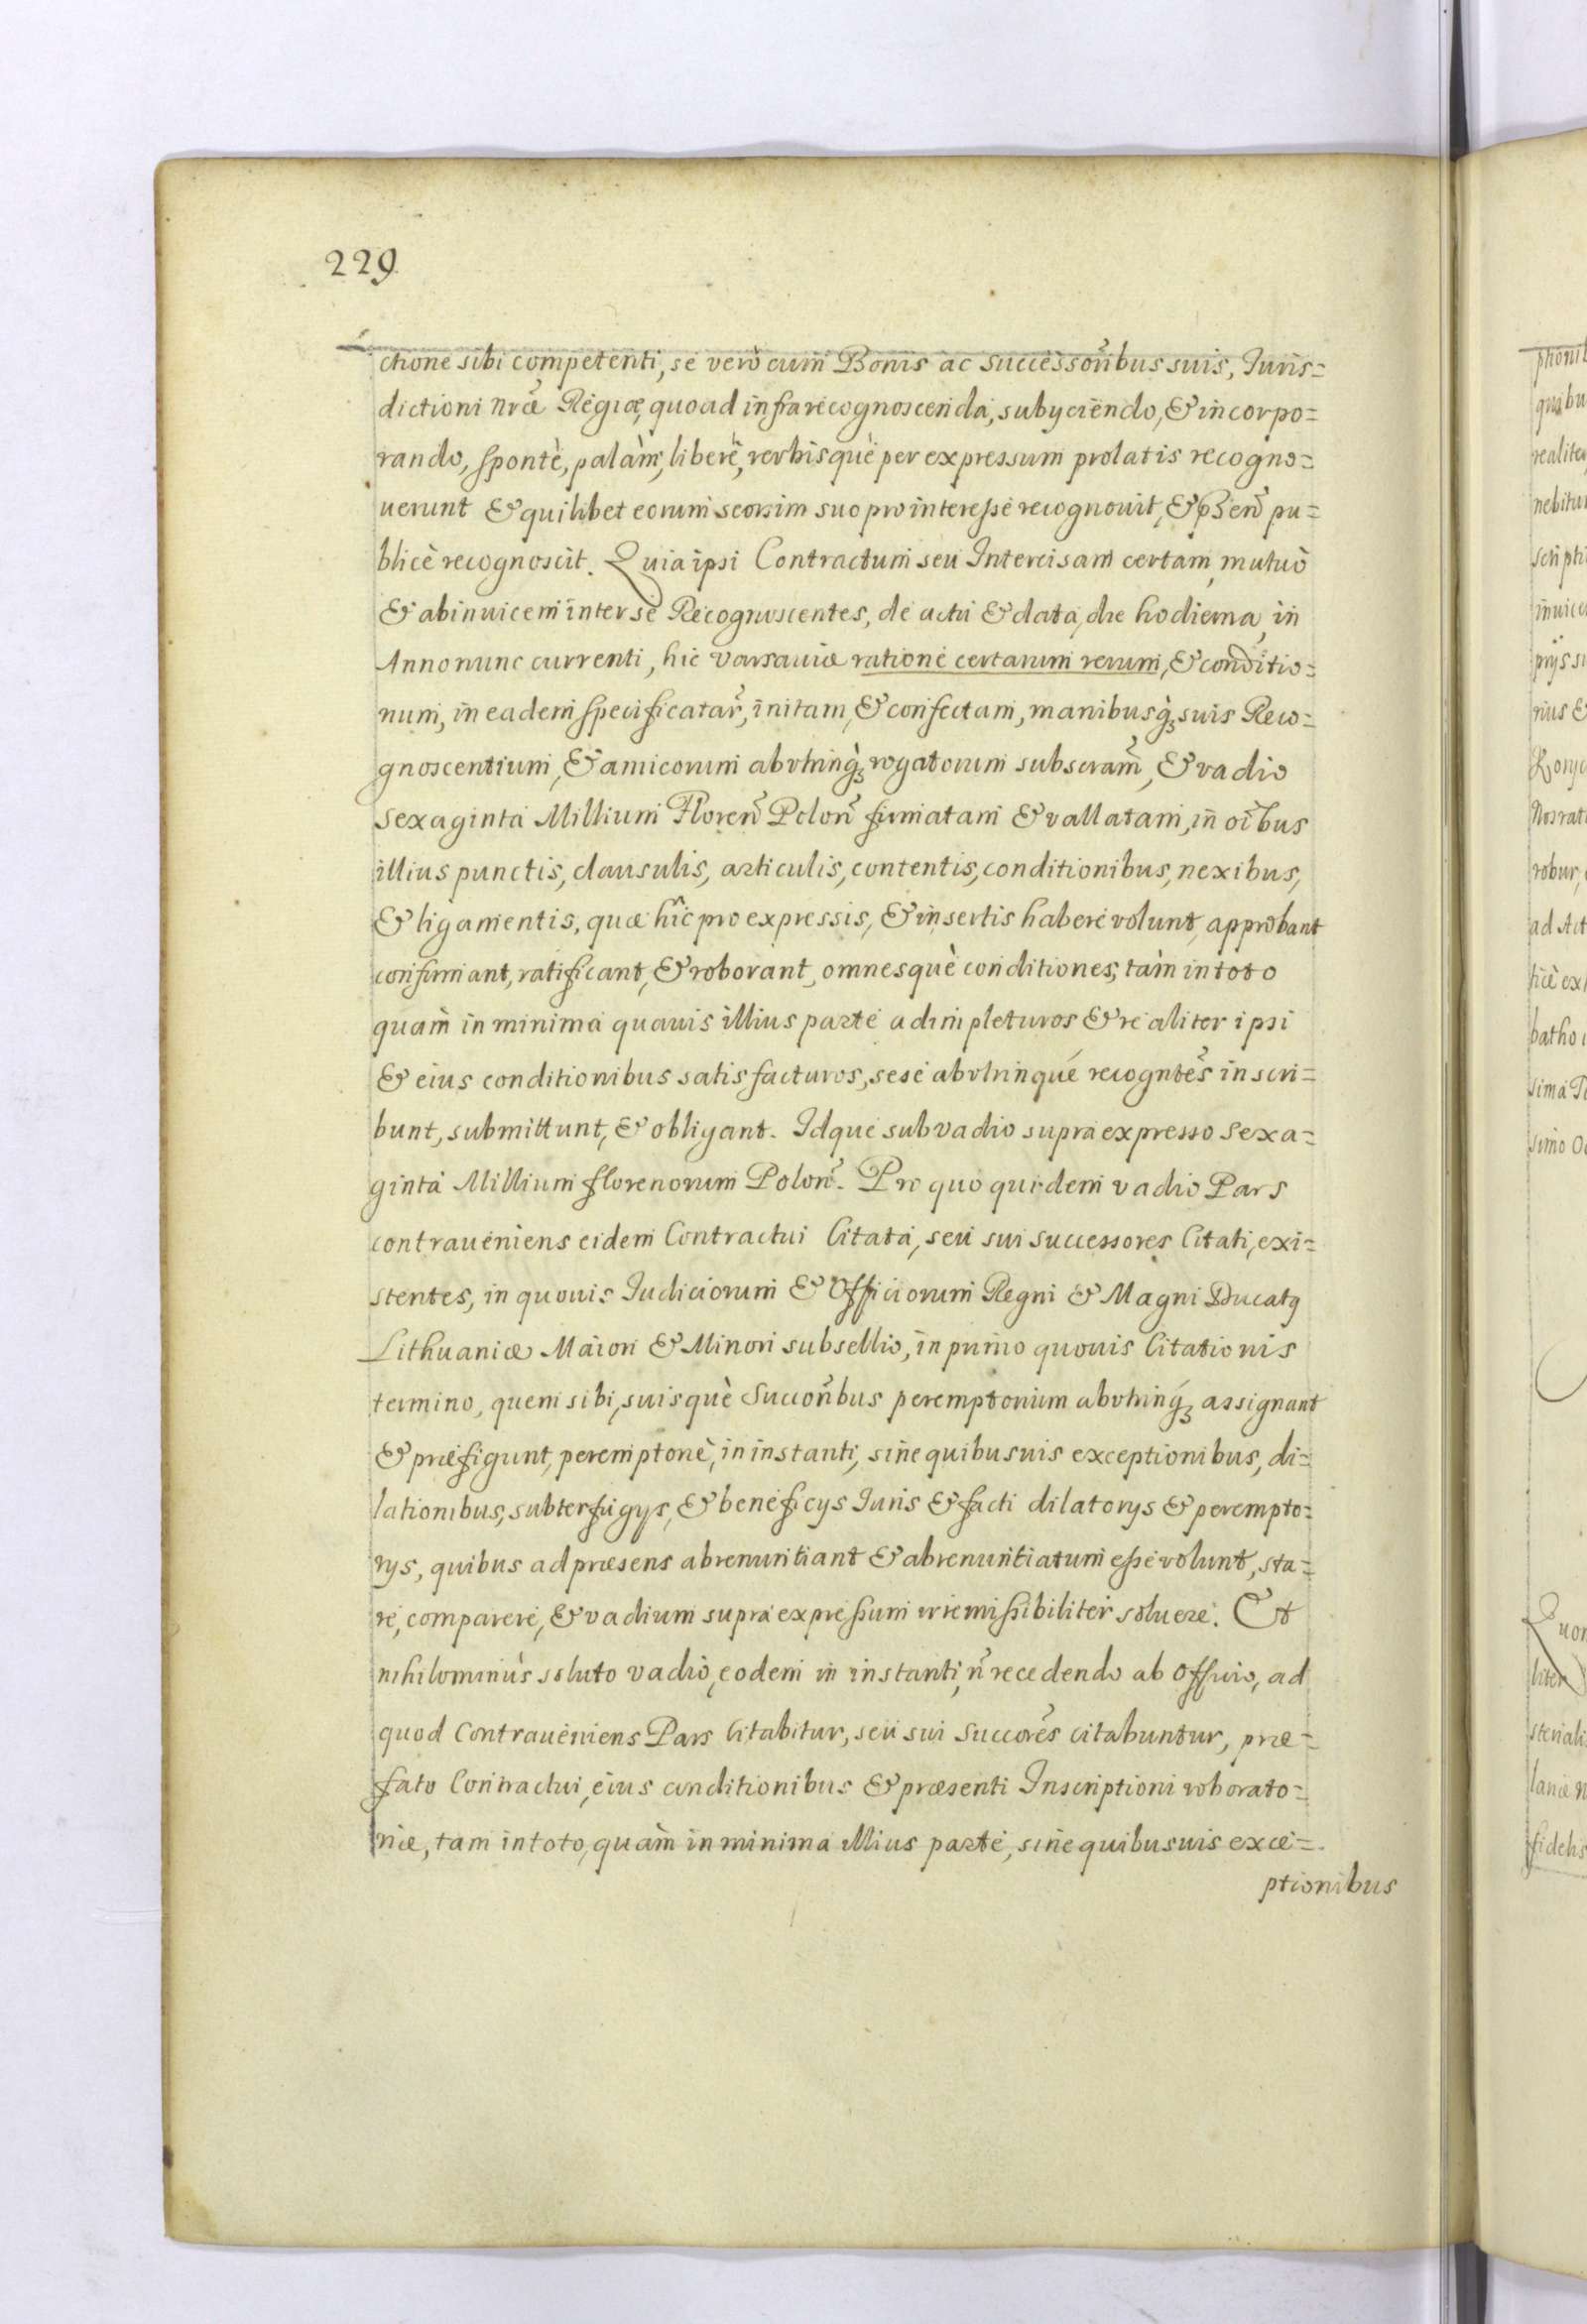 229
ctione sibi competenti, se verò cum Bonis ac successoribus suis, Juris=
dictioni nræ Regiæ, quoad infrarecognoscenda, subyciendo, & incorpo=
rando, sponte, palàm, liberè, verbisquè per expressum prolatis recogno=
uerunt & quilibet eorum seorsim suo pro interesse recognouit, & p̃sen̄ pu=
blicè recognoscit. Quia ipsi Contractum seu Intercisam certam, mutuò
& abinuicem inter se Recognoscentes, de actu & data, die hodierna, in
Anno nunc currenti, hic Varsauiæ ratione certarum rerum, & conditio=
num, in eadem specificatar̄, initam, & confectam, manibusq̨ suis Reco=
gnoscentium, & amicorum abvtrinq̨ rogatorum subscram̄, & vadio
sexaginta Millium Floren̄ Polon̄ firmatam & vallatam, in oībus
illius punctis, clausulis, articulis, contentis, conditionibus, nexibus,
& ligamentis, quæ hîc pro expressis, & insertis habere volunt, approbant
confirmant, ratificant, & roborant, omnesquè conditiones, tàm in toto
quàm in minima quauis illius parte adimpleturos & realiter ipsi
& eius conditionibus satisfacturos, sese abvtrinqué recogntēs inscri=
bunt, submittunt, & obligant. Idque sub vadio supra expresso sexa=
ginta Millium florenorum Polon̄. Pro quo quidem vadio Pars
contraueniens eidem Contractui Citata, seu sui successores Citati, exi=
stentes, in quouis Judiciorum & Officiorum Regni & Magni Ducatq
Lithuaniæ Maiori & Minori subsellio, in primo quouis Citationis
termino, quem sibi, suisquè Succoribus peremptorium abvtrinq̨ assignant
& præfigunt, peremptoriè, in instanti, sine quibusuis exceptionibus, di=
lationibus, subterfugys, & beneficys Juris & facti dilatorys & perempto=
rys, quibus ad præsens abrenuntiant & abrenuntiatum esse volunt, sta=
re, comparere, & vadium supra expressum irremissibiliter soluere. Et
nihilominùs soluto vadio, eodem in instanti, n̄ recedendo ab Officio, ad
quod Contraueniens Pars Citabitur, seu sui Succorēs citabuntur, præ=
fato Contractui, eius conditionibus & præsenti Inscriptioni roborato=
riæ, tam in toto, quàm in minima illius parte, sine quibusuis exce=
ptionibus